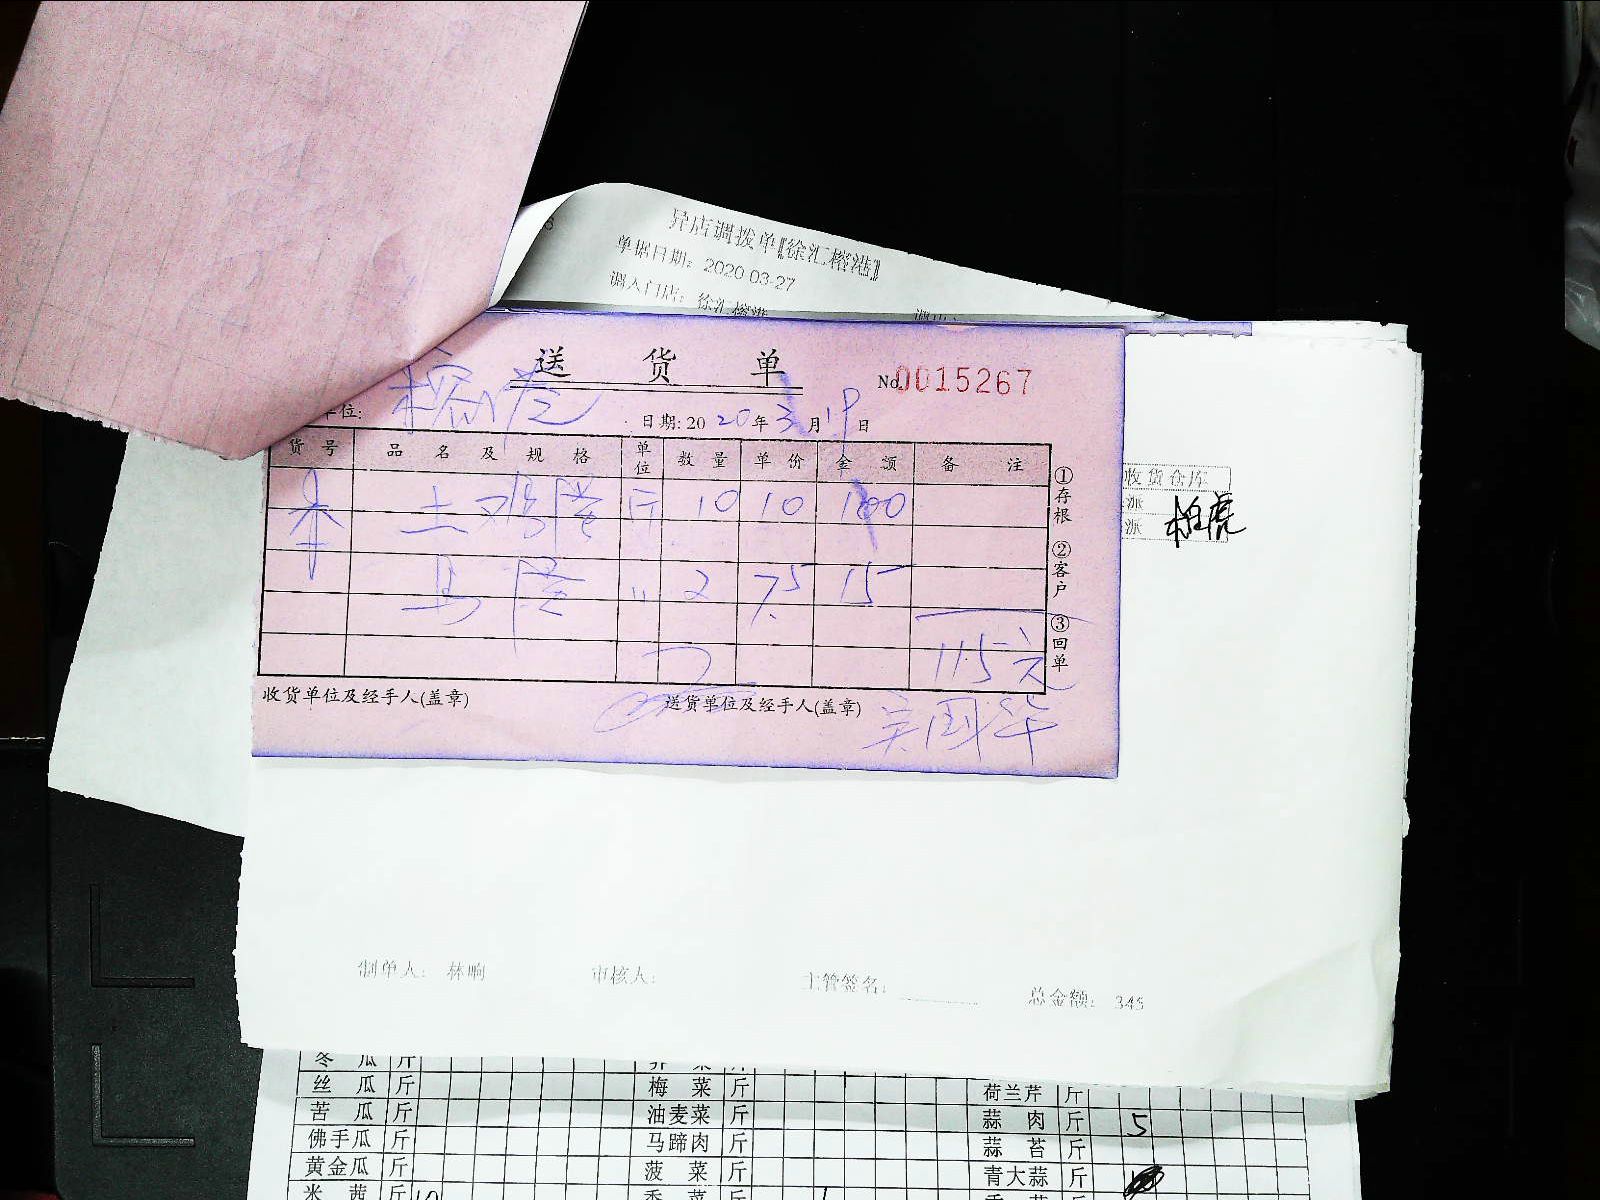 异店调拨单【徐汇榕港】
单据日期：2020-03-27
调入门店：徐汇榕港
送货单
No.0015267
单位：榕港
日期：2020年3月19日
货号 品名及规格 单位 数量 单价 金额 备注
土鸡蛋 斤 10 10 100
〃 2 7.5 15
115元
①存根 ②客户 ③回单
收货单位及经手人(盖章) 送货单位及经手人(盖章) 吴国华
收货仓库
派
派
制单人： 林响 审核人： 主管签名： 总金额： 345
冬瓜 斤
丝瓜 斤 梅菜 斤 荷兰芹 斤
苦瓜 斤 油麦菜 斤 蒜肉 斤 5
佛手瓜 斤 马蹄肉 斤 蒜苔 斤
黄金瓜 斤 菠菜 斤 青大蒜 斤
米茜 斤 10 香菜 斤